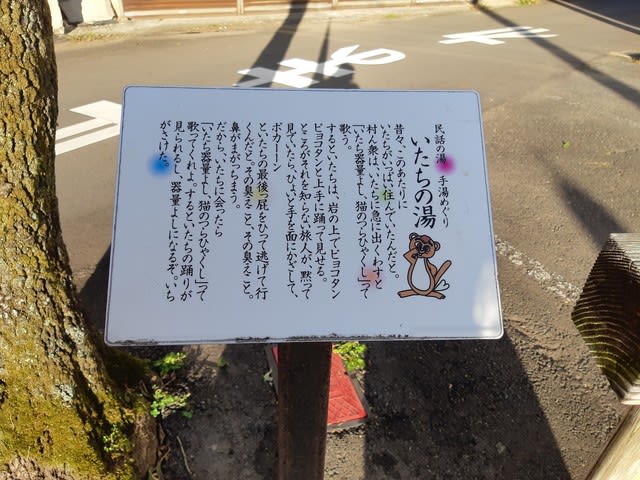 民話の湯 手湯めぐり
いたちの湯
昔々、このあたりに
いたちがいっぱい住んでいたんだと。
村ん衆は、いたちに急に出っくわすと
「いたち器量よし、猫のつらひゃくし」って
歌う。
するといたちは、岩の上でピョコタン
ピョコタンと上手に踊って見せる。
ところがそれを知らない旅人が、黙って
見ていたら、ひょいと手を面にかざして、
ボカーーン
といたちの最後っ屁をひって逃げて行
くんだと。その臭えこと、その臭えこと。
鼻がまがっちまう。
だから、いたちに会ったら
「いたち器量よし、猫のつらひゃくし」って
歌ってくれよ。するといたちの踊りが
見られるし、器量よしになるぞ。いち
がさけた。